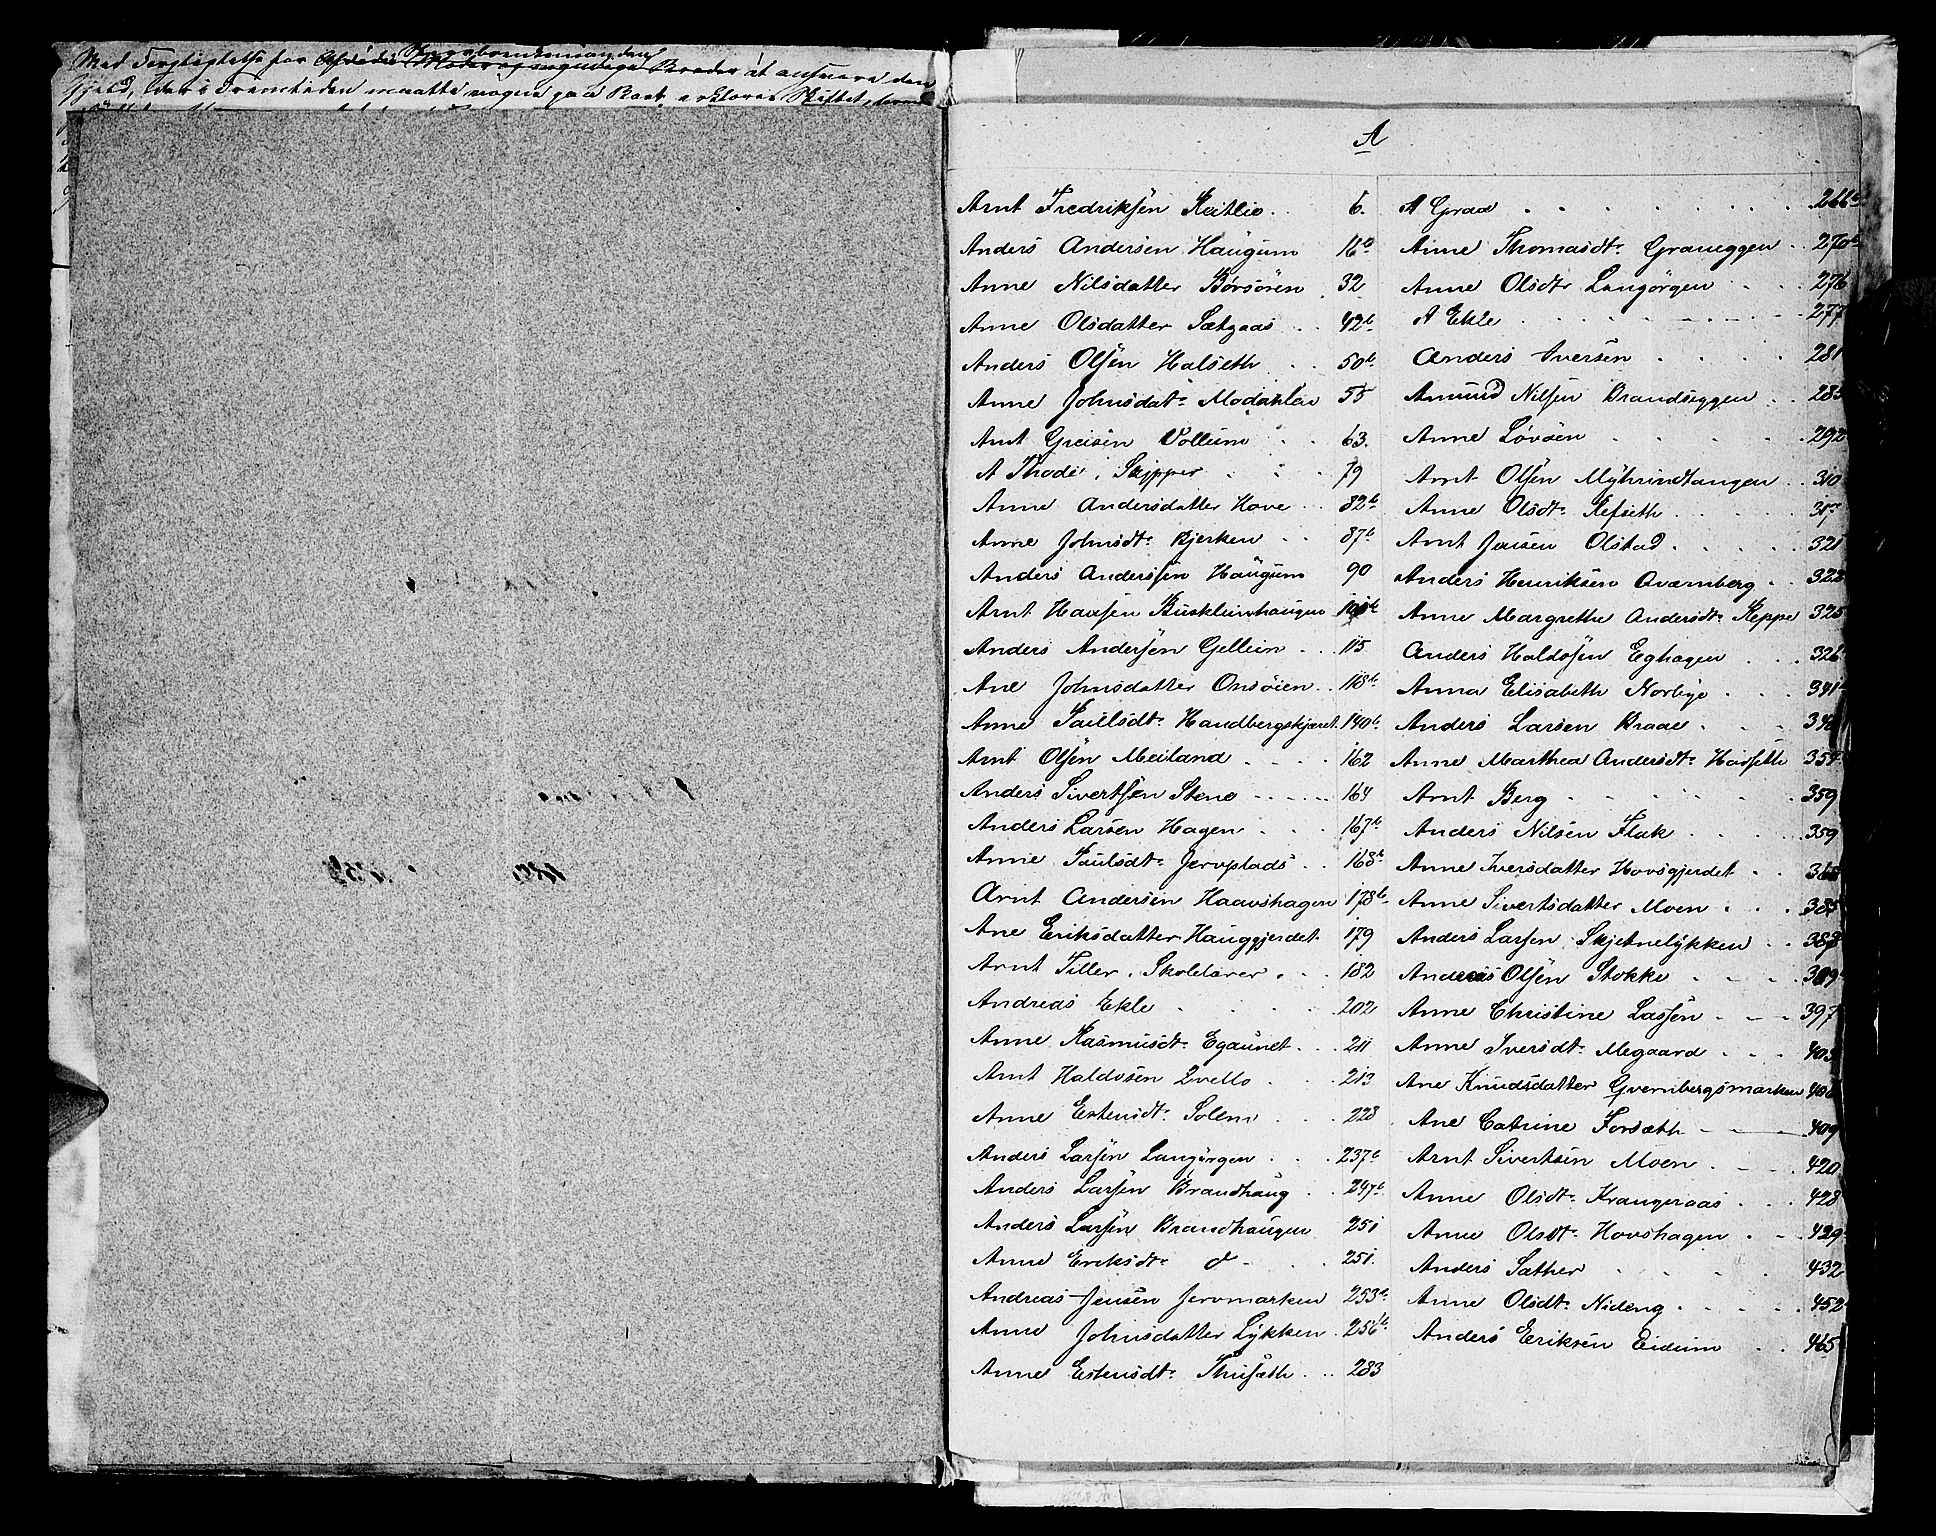 Med Forpligtelse for Afdøde Moder og sognedige Broder at ansvare den
Gjeld, der i Fremtiden maatte vogne paa Boet, erklæres Skiftet
A
Arnt Fredriksen Reitlie . . 6.
Anders Andersen Haugum 16b
Anne Nilsdatter Børsøren . 32
Anne Olsdatter Sætgaas . . 42b
Anders Olsen Halseth . . 50b
Anne Johnsdatr Modahlen 55
Arnt Greisen Vollum . . 63.
A Thode, Skipper . . . 79
Anne Andersdatter Hove . . 82b
Anne Johnsdtr Bjerken . . 87b
Anders Anderssen Haugum 90
Arnt Hansen Buskleinhaugen 101b
Anders Andersen Gellein . . . 115
Ane Johnsdatter Onsøien . . 118b
Anne Paulsdtr Handbergskjæret 140b
Arnt Olsen Meiland . . . . 162
Anders Sivertsen Stene . . . . . 164
Anders Larsen Hagen . . . 167b
Anne Paulsdtr Jervstads . . 168b
Arnt Andersen Haavshagen 178b
Ane Eriksdatter Hauggjerdet . 179
Arnt Tiller, Skolelærer . . . 182
Andreas Ekle . . . . . 202
Anne Rasmusdtr Egaunet . . . 211
Arnt Haldosen Qvello . . . 213
Anne Estensdtr Solem . . . 223
Anders Larsen Langørgen . . . 237b
Anders Larsen Brandhaug . . 247b
Anders Larsen Brandhaugen 251
Anne Eriksdtr do . . . 251.
Andreas Jensen Jervmarken 253b
Anne Johnsdatter Lykken . 256b
Anne Estensdtr Thuseth . . . 283
A Graa . . . . . . . 266b
Anne Thomasdtr Graneggen . . 270b
Anne Olsdtr Langørgen . . . 276
A Ekle . . . . . . . 277
Anders Iversen . . . . 281
Amund Nilsen Brandseggen . . 285
Anne Løvaen . . . . . . 292
Arnt Olsen Myhrindtangen . . 310
Anne Olsdtr Refseth . . . . . 317
Arnt Jensen Olstad . . . . . 321
Anders Henriksen Qværnberg . . 322
Anne Margrethe Andersdtr Reppe 325
Anders Haldosen Eghagen . . . 326
Anna Elisabeth Norbye . . . 341
Anders Larsen Braae . . . 348
Anne Marthea Andersdtr Harseth 354
Arnt Berg . . . . . . . 359
Anders Nilsen Flak . . . . . 359
Anne Iversdatter Hovsgjerdet . . 365
Anne Sivertsdatter Moen . . . 385
Anders Larsen Skjetnelykken . . 388
Anders Olsen Stokke . . . . 389
Anne Christine Lassen . . . 397
Anne Iversdtr Megaard . . . 403
Ane Knudsdatter Qvernbergsmarken 408
Ane Catrine Forsæth . . . 409
Arnt Sivertsen Moen . . . . 420
Anne Olsdtr Krangeraas . . . 428
Anne Olsdtr Hovshagen . . . 429
Anders Sæther . . . . . 432
Anne Olsdtr Nideng . . . . . 452
Anders Eriksen Eidum . . 465